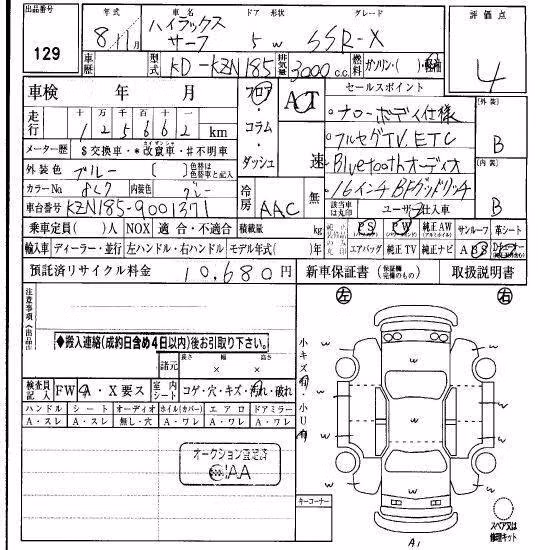 出品番号
129
年式 車名 ドア 形状 グレード
8/11月 ハイラックスサーフ 5 W SSR-X
評価点
4
車歴 型式 KD-KZN185 排気量 3000 c.c. 燃料 ガソリン・( )・軽油
車検 年 月
フロア・コラム・ダッシュ
AT 速
セールスポイント
走行 十 万 千 百 十
125662 km
ナローボディ仕様
フルセグTV.ETC
Bluetoothオーディオ
16インチBFグッドリッチ
外装 B
内装 B
メーター歴 $ 交換車・* 改ざん車・# 不明車
外装色 ブルー 色替は色替車と記入
カラーNo 8C7 内装色 グレー
冷房 AAC 無
該当車は丸印 ユーザー仕入車
車台番号 KZN185-9001371
乗車定員( )人 NOX 適合・不適合 積載量 kg
PS PW 純正AW サンルーフ 革シート
輸入車 ディーラー・並行 左ハンドル・右ハンドル モデル年式( )年
エアバッグ 純正TV 純正ナビ ABS
預託済リサイクル料金 10,680円 新車保証書 (保証欄完備のもの) 取扱説明書
注意事項
◆搬入連絡(成約日含め4日以内)後お引取り下さい。
諸元 長さ × 幅 × 高さ
検査員記入 FW A・X要ス 室内シート コゲ・穴・キズ・汚れ・破れ
ハンドル シート オーディオ ホイル(カバー) エアロ ドアミラー
A・スレ A・スレ 無し・穴 A・ワレ A・ワレ A・ワレ
オークション査定済
AA
小キズ有・小U有
キーコーナー
左 右
W
W W
W W
W
W
W
A1
スペア又は修理キット